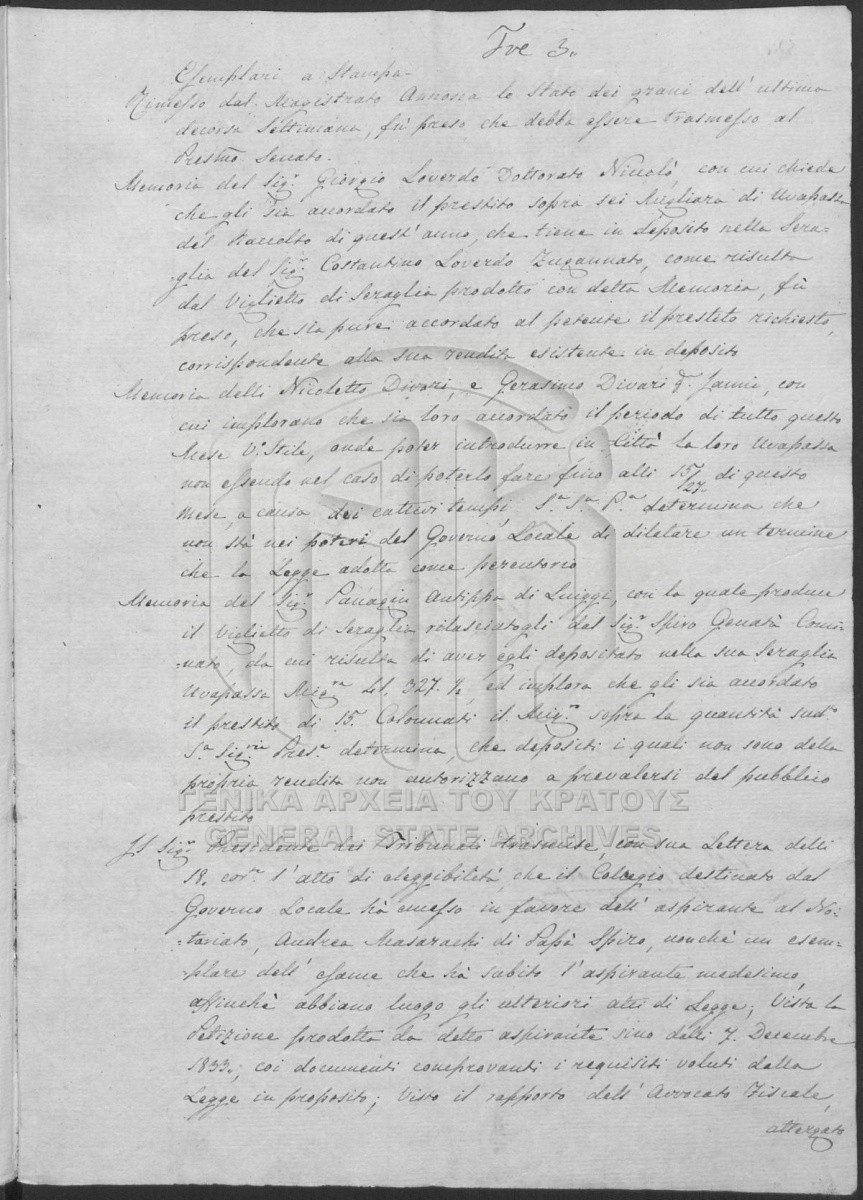 Tre 3.
Esemplari a Stampa.
Rimesso dal Magistrato Annona lo Stato dei grani dell' ultima
decorsa Settimana, fù preso che debba essere trasmesso al
Presmo Senato.
Memoria del Sigr. Giorgio Loverdo Dottorato Niccolò, con cui chiede
che gli sia accordato il prestito sopra sei Migliara di Uvapassa
del Raccolto di quest' anno, che tiene in deposito nella Sera-
-glia del Sigr. Costantino Loverdo Zugannato, come risulta
dal Viglietto di Seraglia prodotto con detta Memoria, fù
preso, che sia pure accordato al petente il prestito richiesto,
corrispondente alla sua rendita esistente in deposito
Memoria delli Nicoletto Divari, e Gerasimo Divari q. Janni, con
cui implorano che sia loro accordato il periodo di tutto questo
Mese Vo. Stile, onde poter introdurre in Città la loro Uvapassa
non essendo nel caso di poterlo fare fino alli 15/27 di questo
Mese, a causa dei cattivi tempi, Sa. Sa. Pa. determina che
non stà nei poteri del Governo Locale di dilatare un termine
che la Legge adotta come perentorio
Memoria del Sigr. Panagin Antippa di Luiggi, con la quale produce
il Viglietto di Seraglia rilasciatogli dal Sigr. Spiro Genatà Comi-
-nato, da cui risulta di aver egli depositato nella sua Seraglia
Uvapassa Migra. 41. 327 ½, ed implora che gli sia accordato
il prestito di 15. Colonnati il Migro. sopra la quantità sudta.
Sa. Sigria Presa. determina, che depositi i quali non sono della
propria rendita non autorizzano a prevalersi del pubblico
prestito
ΓΕΝΙΚΑ ΑΡΧΕΙΑ ΤΟΥ ΚΡΑΤΟΥΣ
GENERAL STATE ARCHIVES
Il Sigr. Presidente dei Tribunali trasmise, con sua Lettera delli
18. corr. l'atto di eleggibilità, che il Collegio destinato dal
Governo Locale hà emesso in favore dell' aspirante al No-
-tariato, Andrea Masarachi di Papà Spiro, nonchè un esem-
-plare dell' esame che hà subito l'aspirante medesimo,
affinchè abbiano luogo gli ulteriori atti di Legge; Vista la
Petizione prodotta da detto aspirante sino dalli 7. Decembre
1833., coi documenti comprovanti i requisiti voluti dalla
Legge in proposito; Visto il rapporto dell' Avvocato Fiscale,
attergato